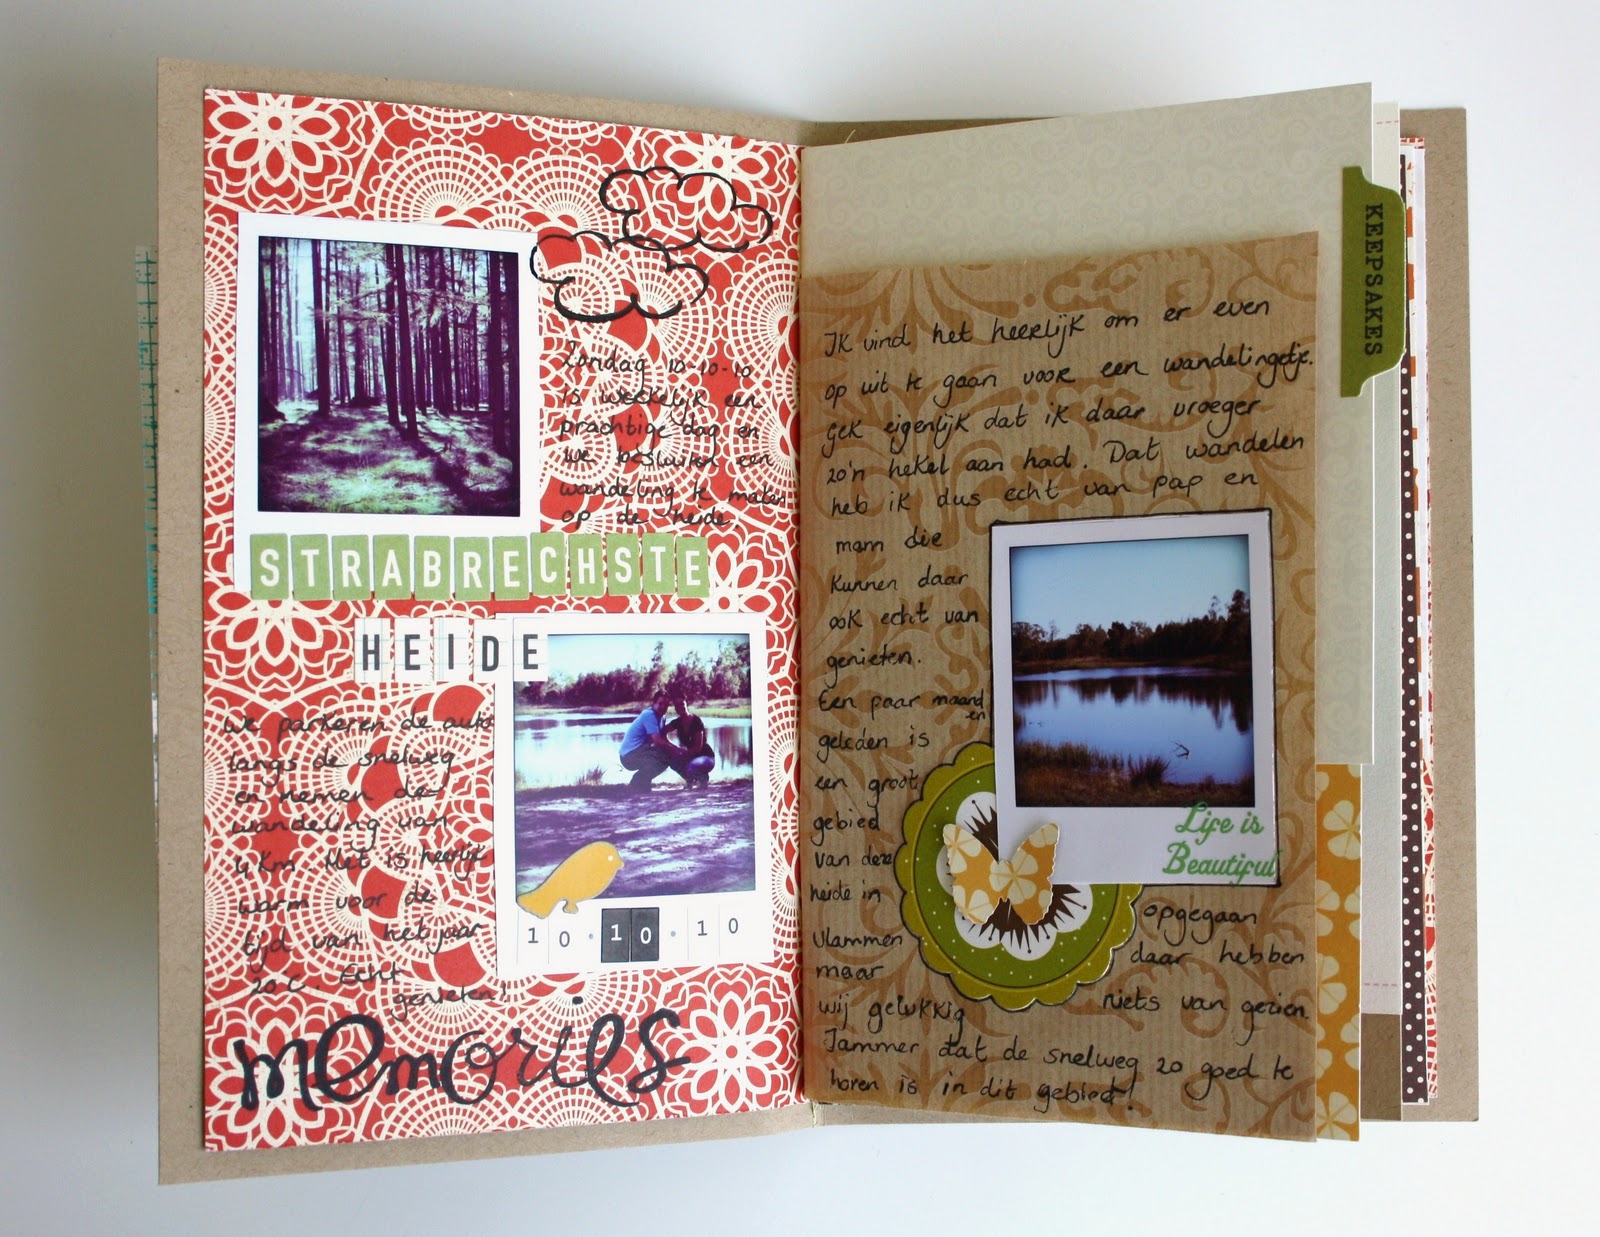 Zondag 10-10-10
is werkelijk een
prachtige dag en
we besluiten een
wandeling te maken
op de heide.
STRABRECHSTE
HEIDE
We parkeren de auto
langs de snelweg
en nemen de
wandeling van
4 Km. Het is heerlijk
warm voor de
tijd van het jaar
20°C. Echt
genieten!
10·10·10
memories
KEEPSAKES
Ik vind het heerlijk om er even
op uit te gaan voor een wandelingetje.
Gek eigenlijk dat ik daar vroeger
zo'n hekel aan had. Dat wandelen
heb ik dus echt van pap en
mam die
kunnen daar
ook echt van
genieten.
Een paar maanden
geleden is
een groot
gebied
van deze
heide in
vlammen opgegaan
maar daar hebben
wij gelukkig niets van gezien.
Jammer dat de snelweg zo goed te
horen is in dit gebied!
Life is
Beautiful